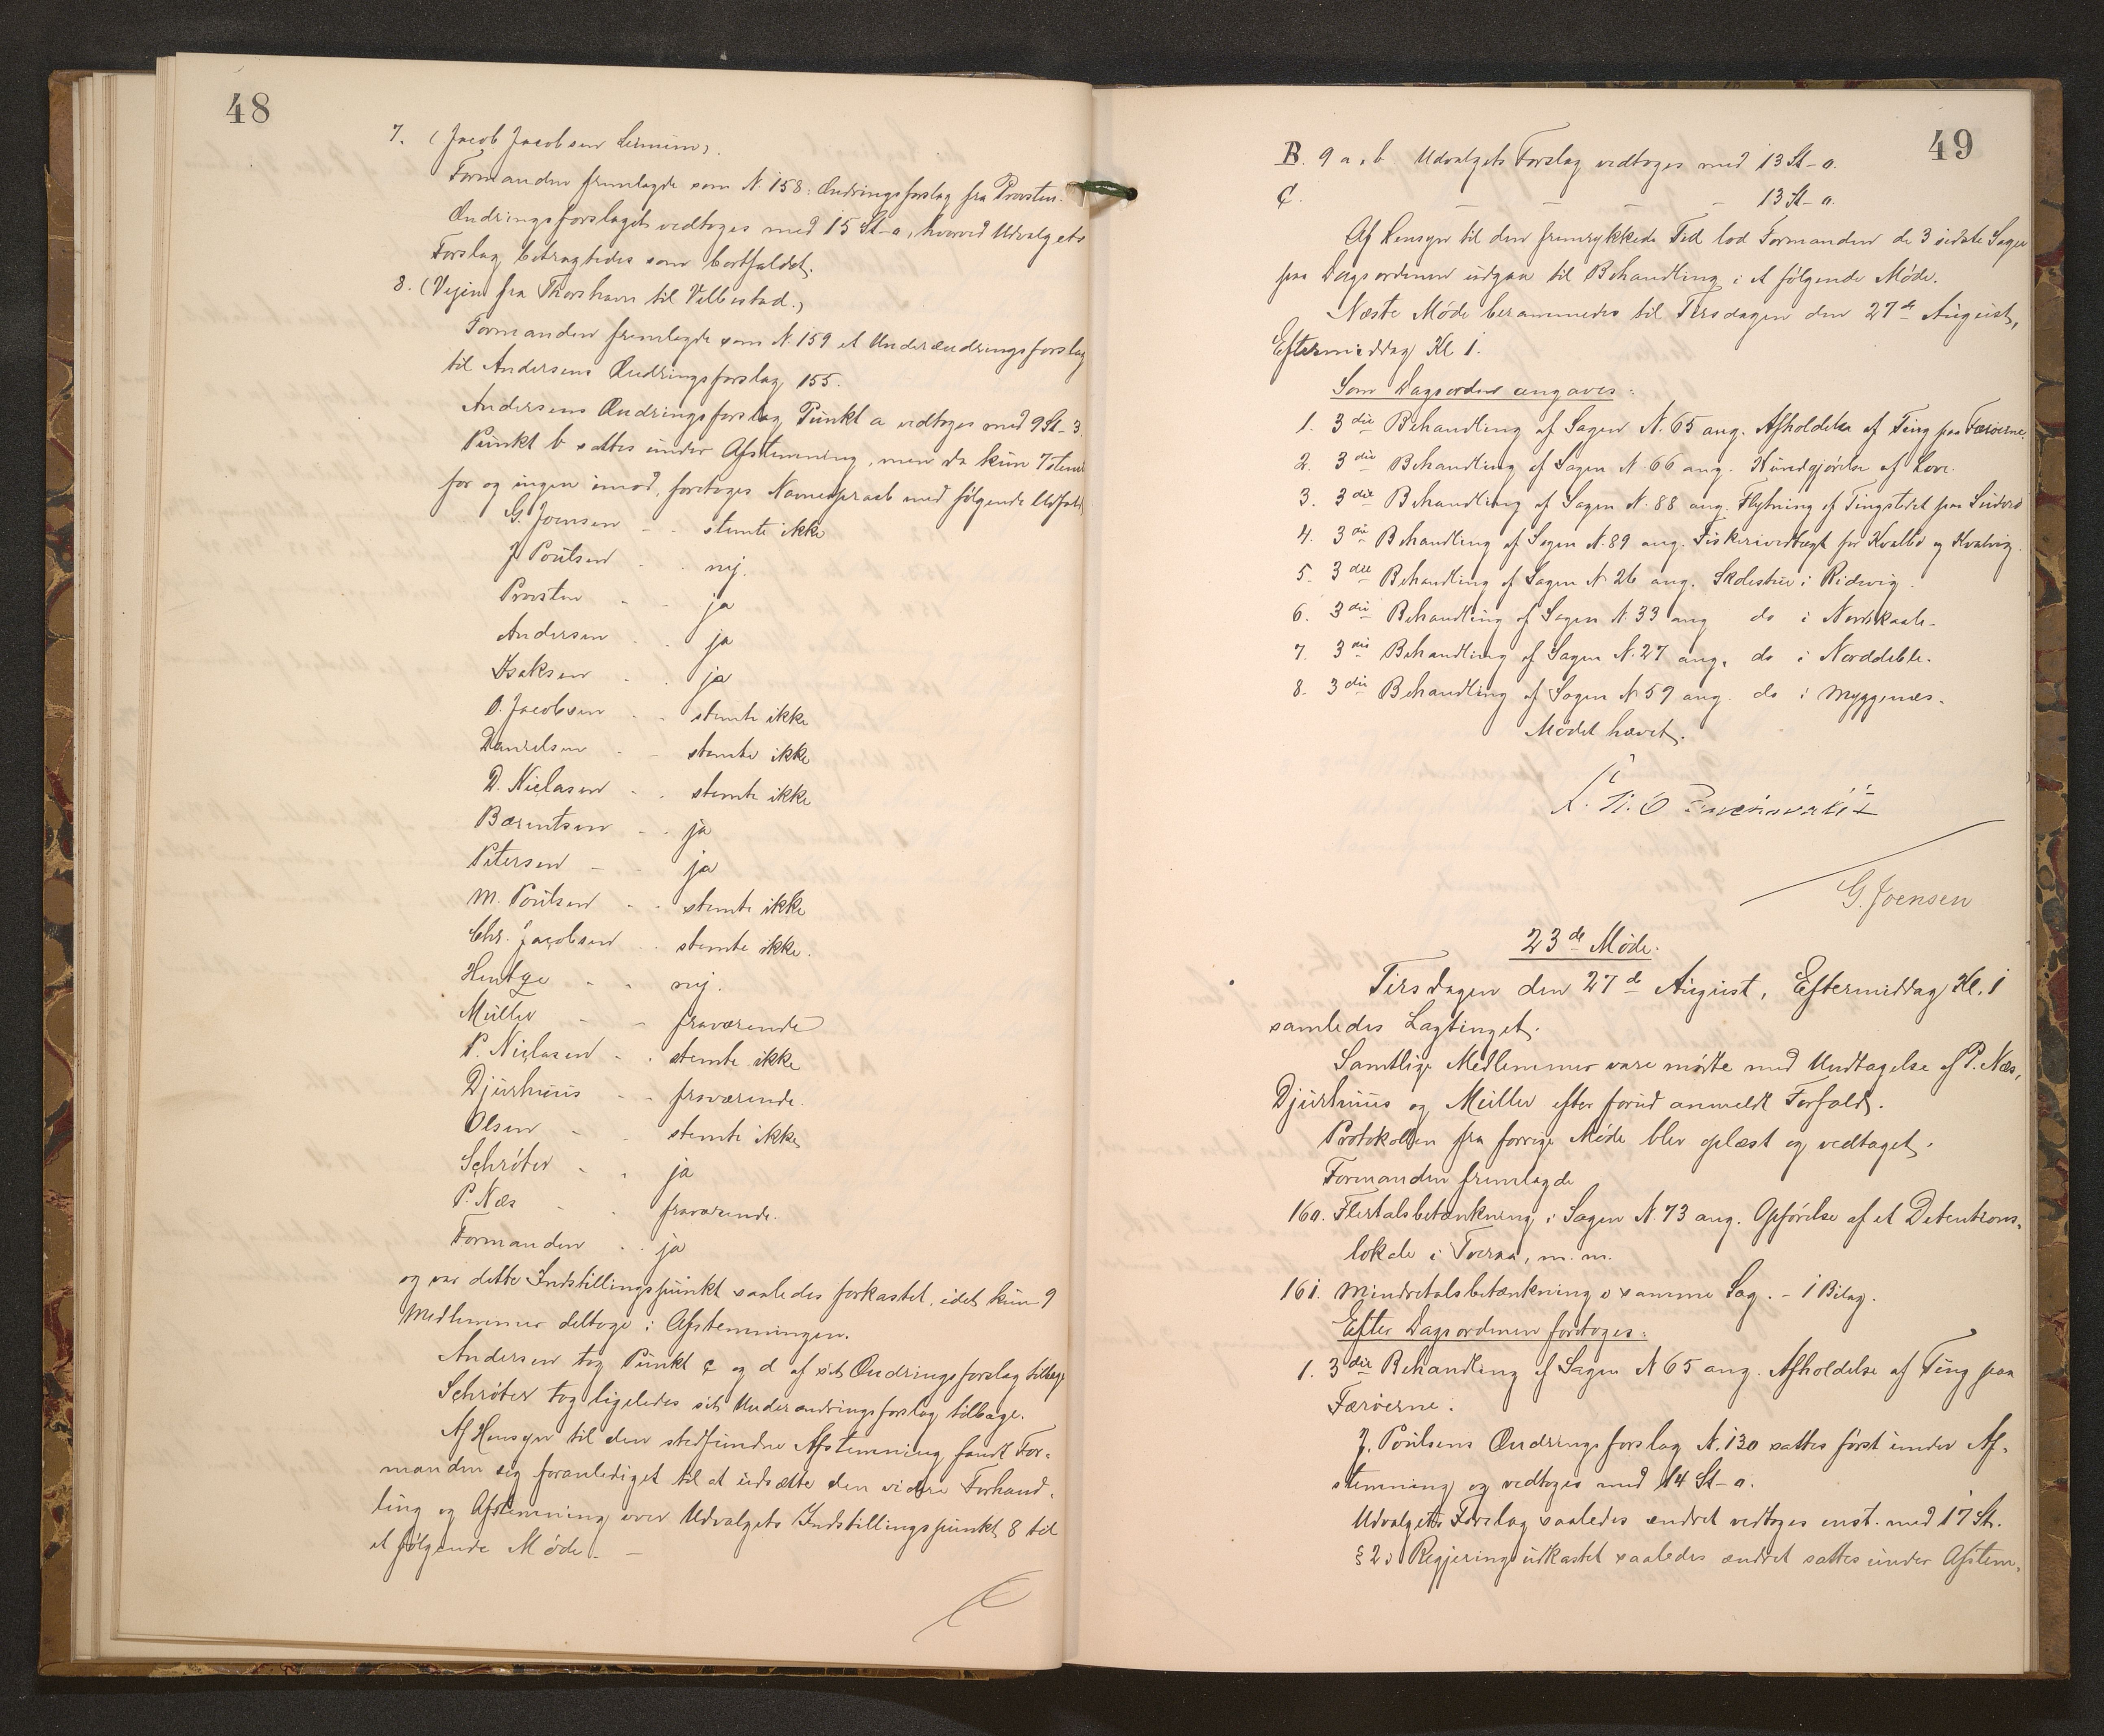 48
7. (Jacob Jacobsen Leinum).
Formanden fremlagde som N. 158: Ændringsforslag fra Provsten.
Ændringsforslaget vedtoges med 15 St-0, hvorved Udvalgets
Forslag betragtedes som bortfaldet.
8. (Vejen fra Thorshavn til Velbestad.)
Formanden fremlagde som N. 159 et Underændringsforslag
til Andersens Ændringsforslag 155.
Andersens Ændringsforslag Punkt a vedtoges med 9 St-3.
Punkt b sattes under Afstemning, men da kun 7 stemte
for og ingen imod, foretoges Navneopraab med følgende Udfald
G. Joensen - - stemte ikke
J. Poulsen - - nej.
Provsten - - ja
Andersen - - ja
Isaksen - - ja
O. Jacobsen - - stemte ikke
Danielsen - - stemte ikke
D. Niclasen - - stemte ikke
Bærentsen - - ja
Petersen - - ja
M. Poulsen - - stemte ikke
Chr. Jacobsen - - stemte ikke.
Hentze - - nej.
Müller - - fraværende
P. Niclasen - - stemte ikke
Djurhuus - - fraværende.
Olsen - - stemte ikke
Schrøter - - ja
P. Næs - - fraværende.
Formanden - - ja
og var dette Indstillingspunkt saaledes forkastet, idet kun 9
Medlemmer deltoge i Afstemningen.
Andersen tog Punkt c og d af sit Ændringsforslag tilbage
Schrøter tog ligeledes sit Underændringsforslag tilbage.
Af Hensyn til den stedfundne Afstemning fandt For-
manden sig foranlediget til at udsætte den videre Forhand-
ling og Afstemning over Udvalgets Indstillingspunkt 8 til
et følgende Møde. -
49
B. 9 a, b Udvalgets Forslag vedtoges med 13 St-0.
C. - - - - 13 St-0.
Af Hensyn til den fremrykkede Tid lod Formanden de 3 sidste Sager
paa Dagsordenen udgaa til Behandling i et følgende Møde.
Næste Møde berammedes til Tirsdagen den 27de August,
Eftermiddag Kl 1.
Som Dagsorden angaves:
1. 3die Behandling af Sagen N. 65 ang. Afholdelse af Ting paa Færøerne.
2. 3die Behandling af Sagen N. 66 ang. Kundgjørelse af Love.
3. 3die Behandling af Sagen N. 88 ang. Flytning af Tingstedet paa Suderø
4. 3die Behandling af Sagen N. 89 ang. Fiskerivedtægt for Kvalbø og Kvalvig.
5. 3die Behandling af Sagen N. 26 ang. Skolestue i Ridevig.
6. 3die Behandling af Sagen N. 33 ang do i Nordskaale.
7. 3die Behandling af Sagen N. 27 ang. do i Norddeble.
8. 3die Behandling af Sagen N. 59 ang. do i Myggenæs.
Mødet hævet.
G. Joensen
23de Møde.
Tirsdagen den 27de August, Eftermiddag Kl. 1
samledes Lagtinget.
Samtlige Medlemmer vare mødte med Undtagelse af P. Næs,
Djurhuus og Müller efter forud anmeldt Forfald.
Protokollen fra forrige Møde blev oplæst og vedtaget.
Formanden fremlagde
160. Flertalsbetænkning i Sagen N. 73 ang. Opførelse af et Detentions-
lokale i Tveraa, m. m.
161. Mindretalsbetænkning i samme Sag. - 1 Bilag.
Efter Dagsordenen foretoges:
1. 3die Behandling af Sagen N 65 ang. Afholdelse af Ting paa
Færøerne.
J. Poulsens Ændringsforslag N. 130 sattes først under Af-
stemning og vedtoges med 14 St-0.
Udvalgets Forslag saaledes ændret vedtoges enst. med 17 St.
§ 2 i Regjeringsudkastet saaledes ændret sattes under Afstem-